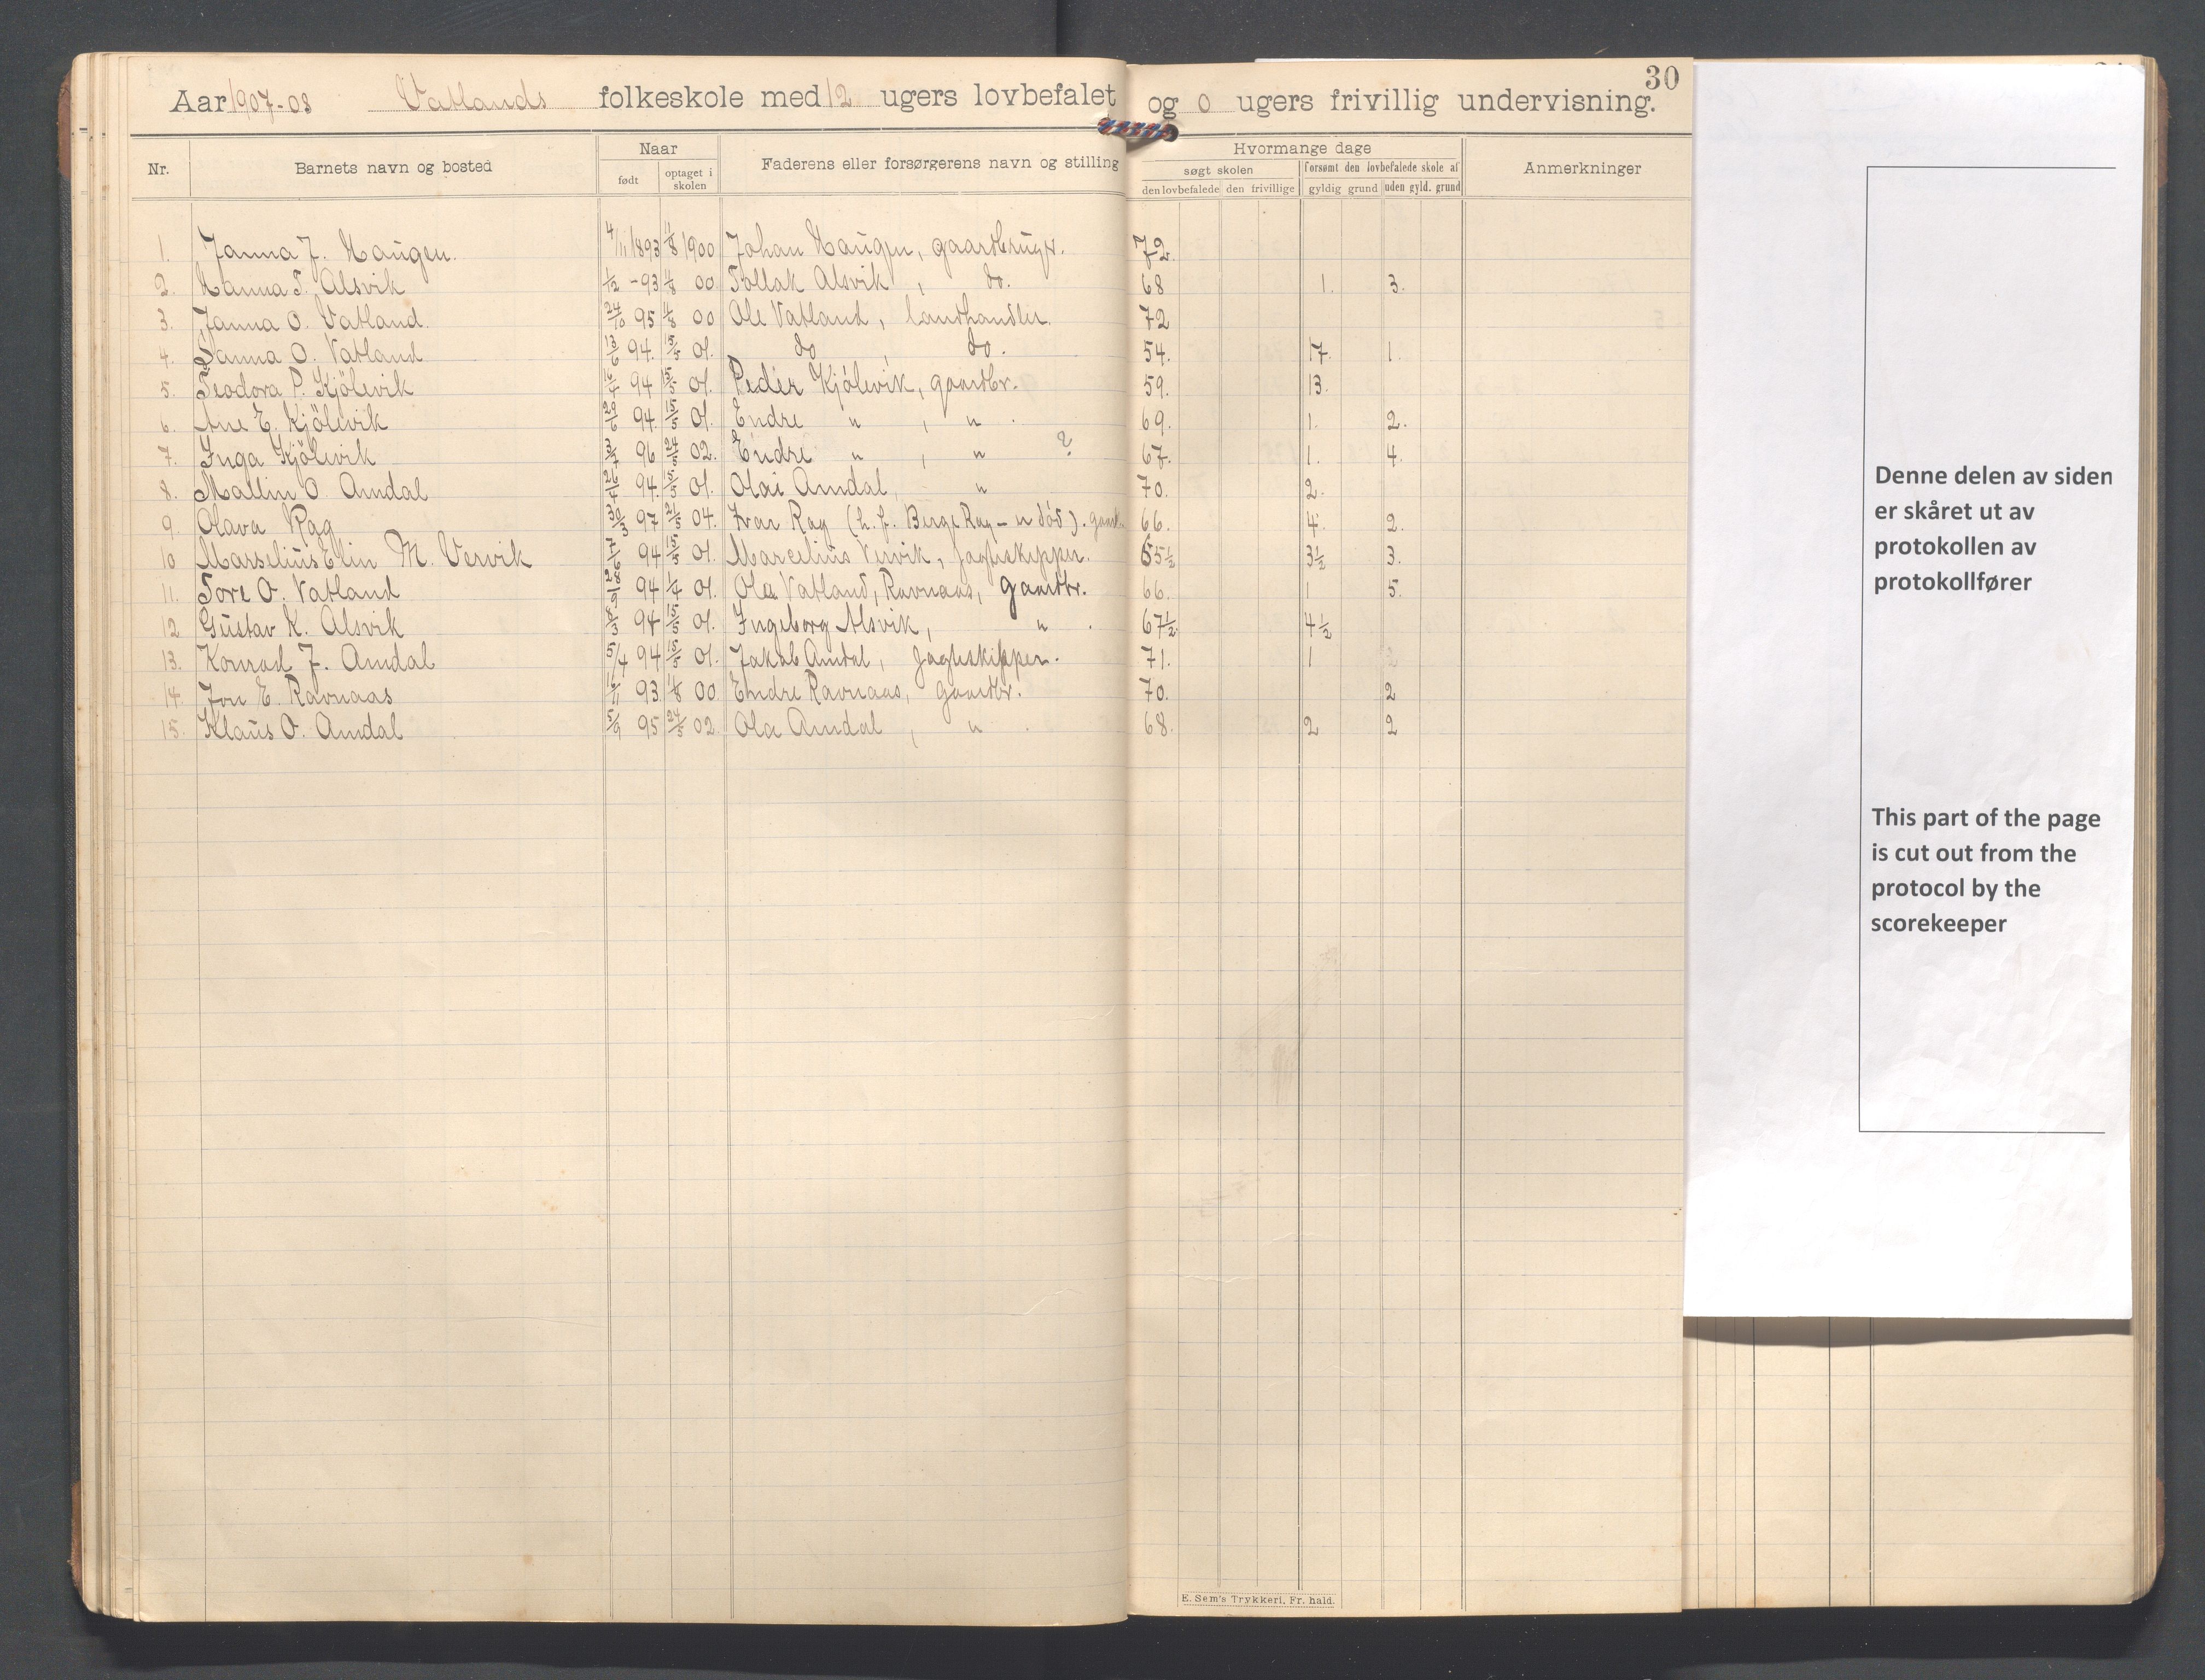 30
Aar 1907-08 Vatlands folkeskole med 12 ugers lovbefalet og 0 ugers frivillig undervisning.
Nr. Barnets navn og bosted Naar Faderens eller forsørgerens navn og stilling Hvormange dage Anmerkninger
født optaget i skolen søgt skolen forsømt den lovbefalede skole af
den lovbefalede den frivillige gyldig grund uden gyld. grund
1. Janna J. Haugen. 4/11 1893 11/8 1900 Johan Haugen, gaardbruger. 72.
2. Hanna T. Alsvik 1/2 -93 11/8 00 Tollak Alsvik, do. 68 1. 3.
3. Janna O. Vatland. 24/10 95 11/8 00 Ole Vatland, landhandler. 72
4. Sanna O. Vatland 94. 15/5 01. do, do. 54. 17. 1.
5. Teodora P. Kjölevik 94 15/5 01. Peder Kjölevik, gaardbr. 59. 13.
6. Ane E. Kjölevik 94. 15/5 01. Endre " , " . 69. 1. 2.
7. Inga Kjölevik 96 24/5 02. Endre " , " ? 67. 1. 4.
8. Mallin O. Amdal 94. 15/5 01. Olai Amdal, " 70. 2.
9. Olava Rag 30/3 97 21/5 04. Ivar Rag (h. f. Berge Rag - er död). gaardb. 66. 4. 2.
10 Marselius Elin M. Vervik 94 15/5 01. Marcelius Vervik, jagteskipper. 65½ 3½ 3.
11. Tore O. Vatland 94 1/4 01. Ole Vatland, Ravnaas, gaardbr. 66. 1 5.
12 Gustav K. Alsvik 94 15/5 01. Ingeborg Alsvik, " . 67½ 4½
13. Konrad J. Amdal 5/4 94 15/5 01. Jakob Amdal, jagteskipper. 71. 1
14. Jon E. Ravnaas 93. 11/8 00 Endre Ravnaas, gaardbr. 70. 2
15. Klaus O. Amdal 5/9 95 24/5 02 Ola Amdal, " . 68. 2 2
E. Sem's Trykkeri, Fr. hald.
Denne delen av siden
er skåret ut av
protokollen av
protokollfører
This part of the page
is cut out from the
protocol by the
scorekeeper